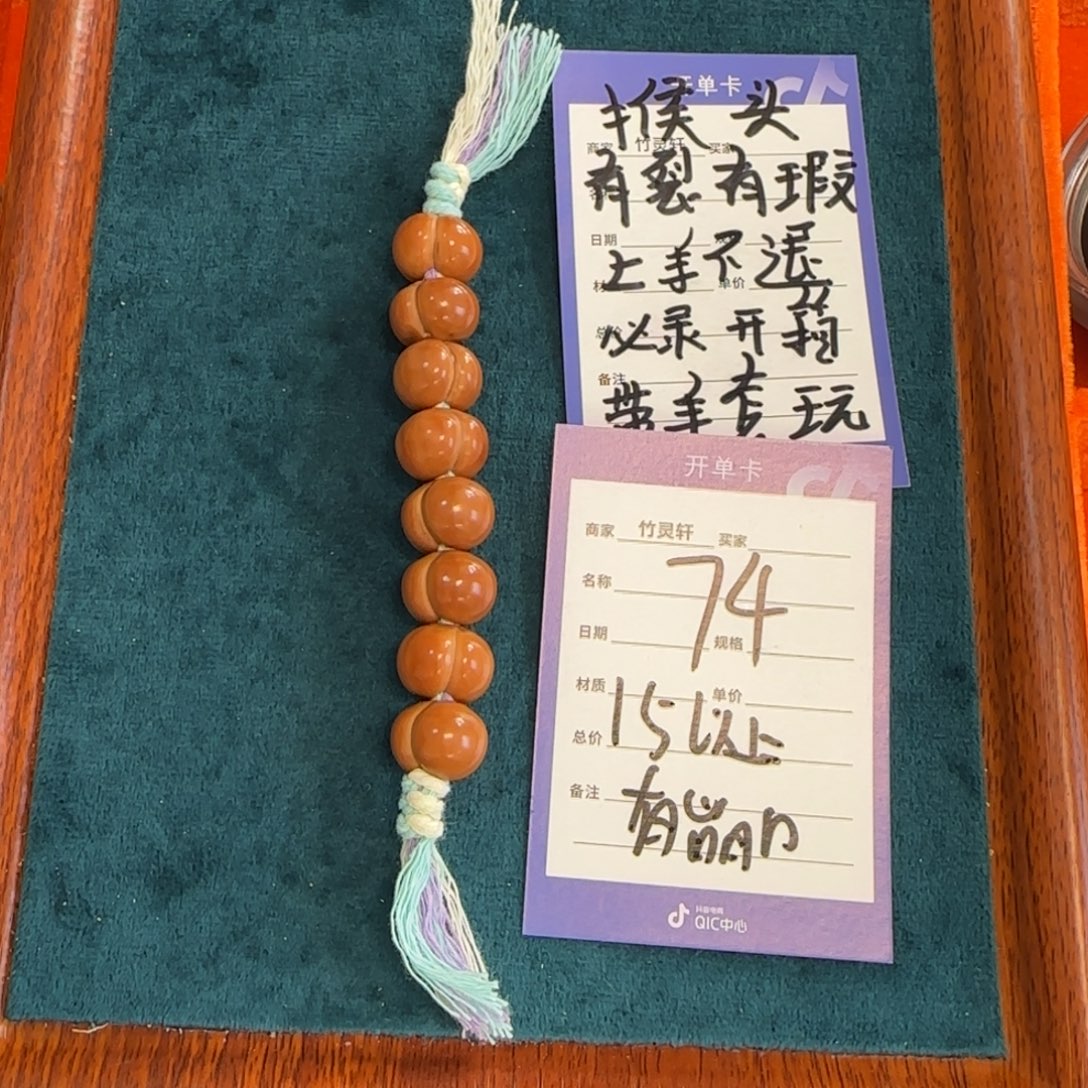 开单卡
猴头
商家 竹灵轩 买家
有裂有瑕
日期
上手不退
单价
必录开箱
备注
带手套玩
开单卡
商家 竹灵轩 买家
名称
74
日期 规格
材质 单价
15以上
总价
备注
有
抖音电商
QIC中心